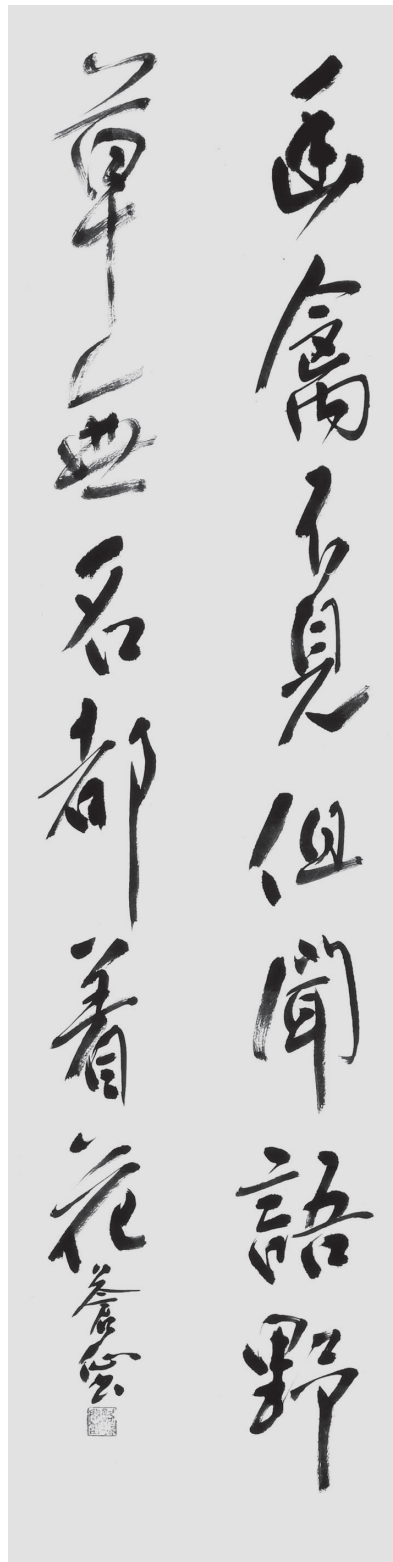 幽禽不見但聞語野
草無名都着花